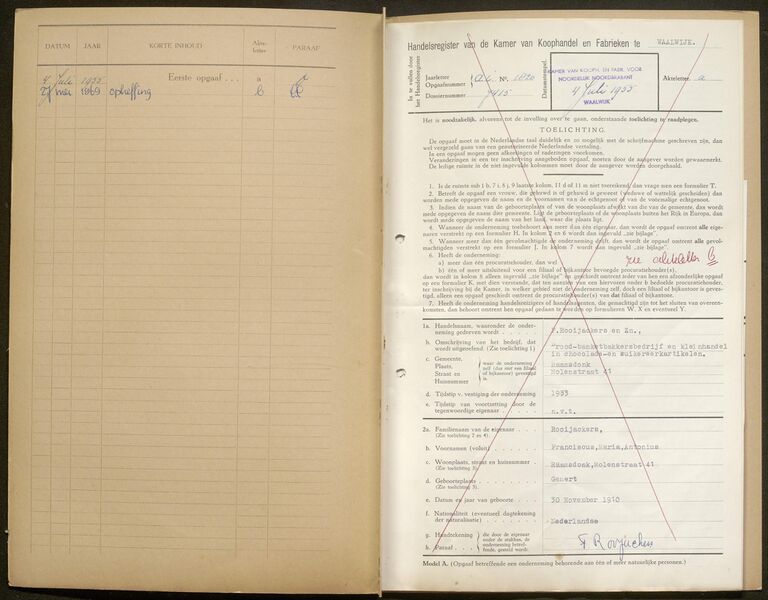 DATUM JAAR KORTE INHOUD Akte-letter PARAAF
4 Juli 1955 Eerste opgaaf . . . a
27 mei 1969 opheffing b
Handelsregister van de Kamer van Koophandel en Fabrieken te WAALWIJK.
In te vullen door het Handelsregister
Jaarletter
Opgaafnummer
No. 1820
Dossiernummer 7415
Datumstempel
KAMER VAN KOOPH. EN FABR. VOOR
NOORDELIJK NOORDBRABANT
4 Juli 1955
WAALWIJK
Akteletter a
Het is noodzakelijk, alvorens tot de invulling over te gaan, onderstaande toelichting te raadplegen.
TOELICHTING.
De opgaaf moet in de Nederlandse taal duidelijk en zo mogelijk met de schrijfmachine geschreven zijn, dan
wel vergezeld gaan van een geautoriseerde Nederlandse vertaling.
In een opgaaf mogen geen afkortingen of raderingen voorkomen.
Veranderingen in een ter inschrijving aangeboden opgaaf, moeten door de aangever worden gewaarmerkt.
De ledige ruimte in de niet ingevulde kolommen moet door de aangever worden doorgehaald.
1. Is de ruimte sub 1 b, 7 i, 8 j, 9 laatste kolom, 11 d of 11 m niet toereikend, dan vrage men een formulier T.
2. Betreft de opgaaf een vrouw, die gehuwd is of gehuwd is geweest (weduwe of wettelijk gescheiden) dan
worden mede opgegeven de naam en de voornamen van de echtgenoot of van de voormalige echtgenoot.
3. Indien de naam van de geboorteplaats of van de woonplaats afwijkt van die van de gemeente, dan wordt
mede opgegeven de naam dier gemeente. Ligt de geboorteplaats of de woonplaats buiten het Rijk in Europa, dan
wordt mede opgegeven de naam van het land, waar die plaats ligt.
4. Wanneer de onderneming toebehoort aan meer dan één eigenaar, dan wordt de opgaaf omtrent alle eige-
naren verstrekt op een formulier H. In kolom 2 en 6 wordt dan ingevuld „zie bijlage”.
5. Wanneer meer dan één gevolmachtigde de onderneming drijft, dan wordt de opgaaf omtrent alle gevol-
machtigden verstrekt op een formulier J. In kolom 7 wordt dan ingevuld „zie bijlage”.
6. Heeft de onderneming:
a) meer dan één procuratiehouder, dan wel
zie akteletter B
b) één of meer uitsluitend voor een filiaal of bijkantoor bevoegde procuratiehouder(s),
dan wordt in kolom 8 alleen ingevuld „zie bijlage” en geschiedt omtrent ieder van hen een afzonderlijke opgaaf
op een formulier K, met dien verstande, dat ten aanzien van een hiervoren onder b bedoelde procuratiehouder,
ter inschrijving bij de Kamer, in welker gebied niet de onderneming zelf, doch een filiaal of bijkantoor is geves-
tigd, alleen een opgaaf geschiedt omtrent de procuratiehouder(s) van dat filiaal of bijkantoor.
7. Heeft de onderneming handelsreizigers of handelsagenten, die gemachtigd zijn tot het sluiten van overeen-
komsten, dan behoort omtrent hen opgaaf gedaan te worden op formulieren W, X en eventueel Y.
1a. Handelsnaam, waaronder de onder-
neming gedreven wordt . . . F.Rooijackers en Zn.,
b. Omschrijving van het bedrijf, dat
wordt uitgeoefend. (Zie toelichting 1)
Brood-banketbakkersbedrijf en kleinhandel
in chocolade-en suikerwerkartikelen.
c. Gemeente,
Plaats,
Straat en
Huisnummer
waar de onderneming
zelf (dus niet een filiaal
of bijkantoor) gevestigd
is.
Raamsdonk
Molenstraat 41
d. Tijdstip v. vestiging der onderneming 1933
e. Tijdstip van voortzetting door de
tegenwoordige eigenaar . . . n.v.t.
2a. Familienaam van de eigenaar . . . Rooijackers,
(Zie toelichting 2 en 4).
b. Voornamen (voluit) . . . Franciscus,Maria,Antonius
c. Woonplaats, straat en huisnummer Raamsdonk,Molenstraat 41
(Zie toelichting 3).
d. Geboorteplaats . . . Gemert
(Zie toelichting 3).
e. Datum en jaar van geboorte . . . 30 November 1910
f. Nationaliteit (eventueel dagtekening
der naturalisatie) . . . Nederlandse
g. Handtekening
h. Paraaf . . .
die door de eigenaar
onder de stukken, de
onderneming betref-
fende, gesteld wordt.
F Rooijackers
Model A. (Opgaaf betreffende een onderneming behorende aan één of meer natuurlijke personen.)